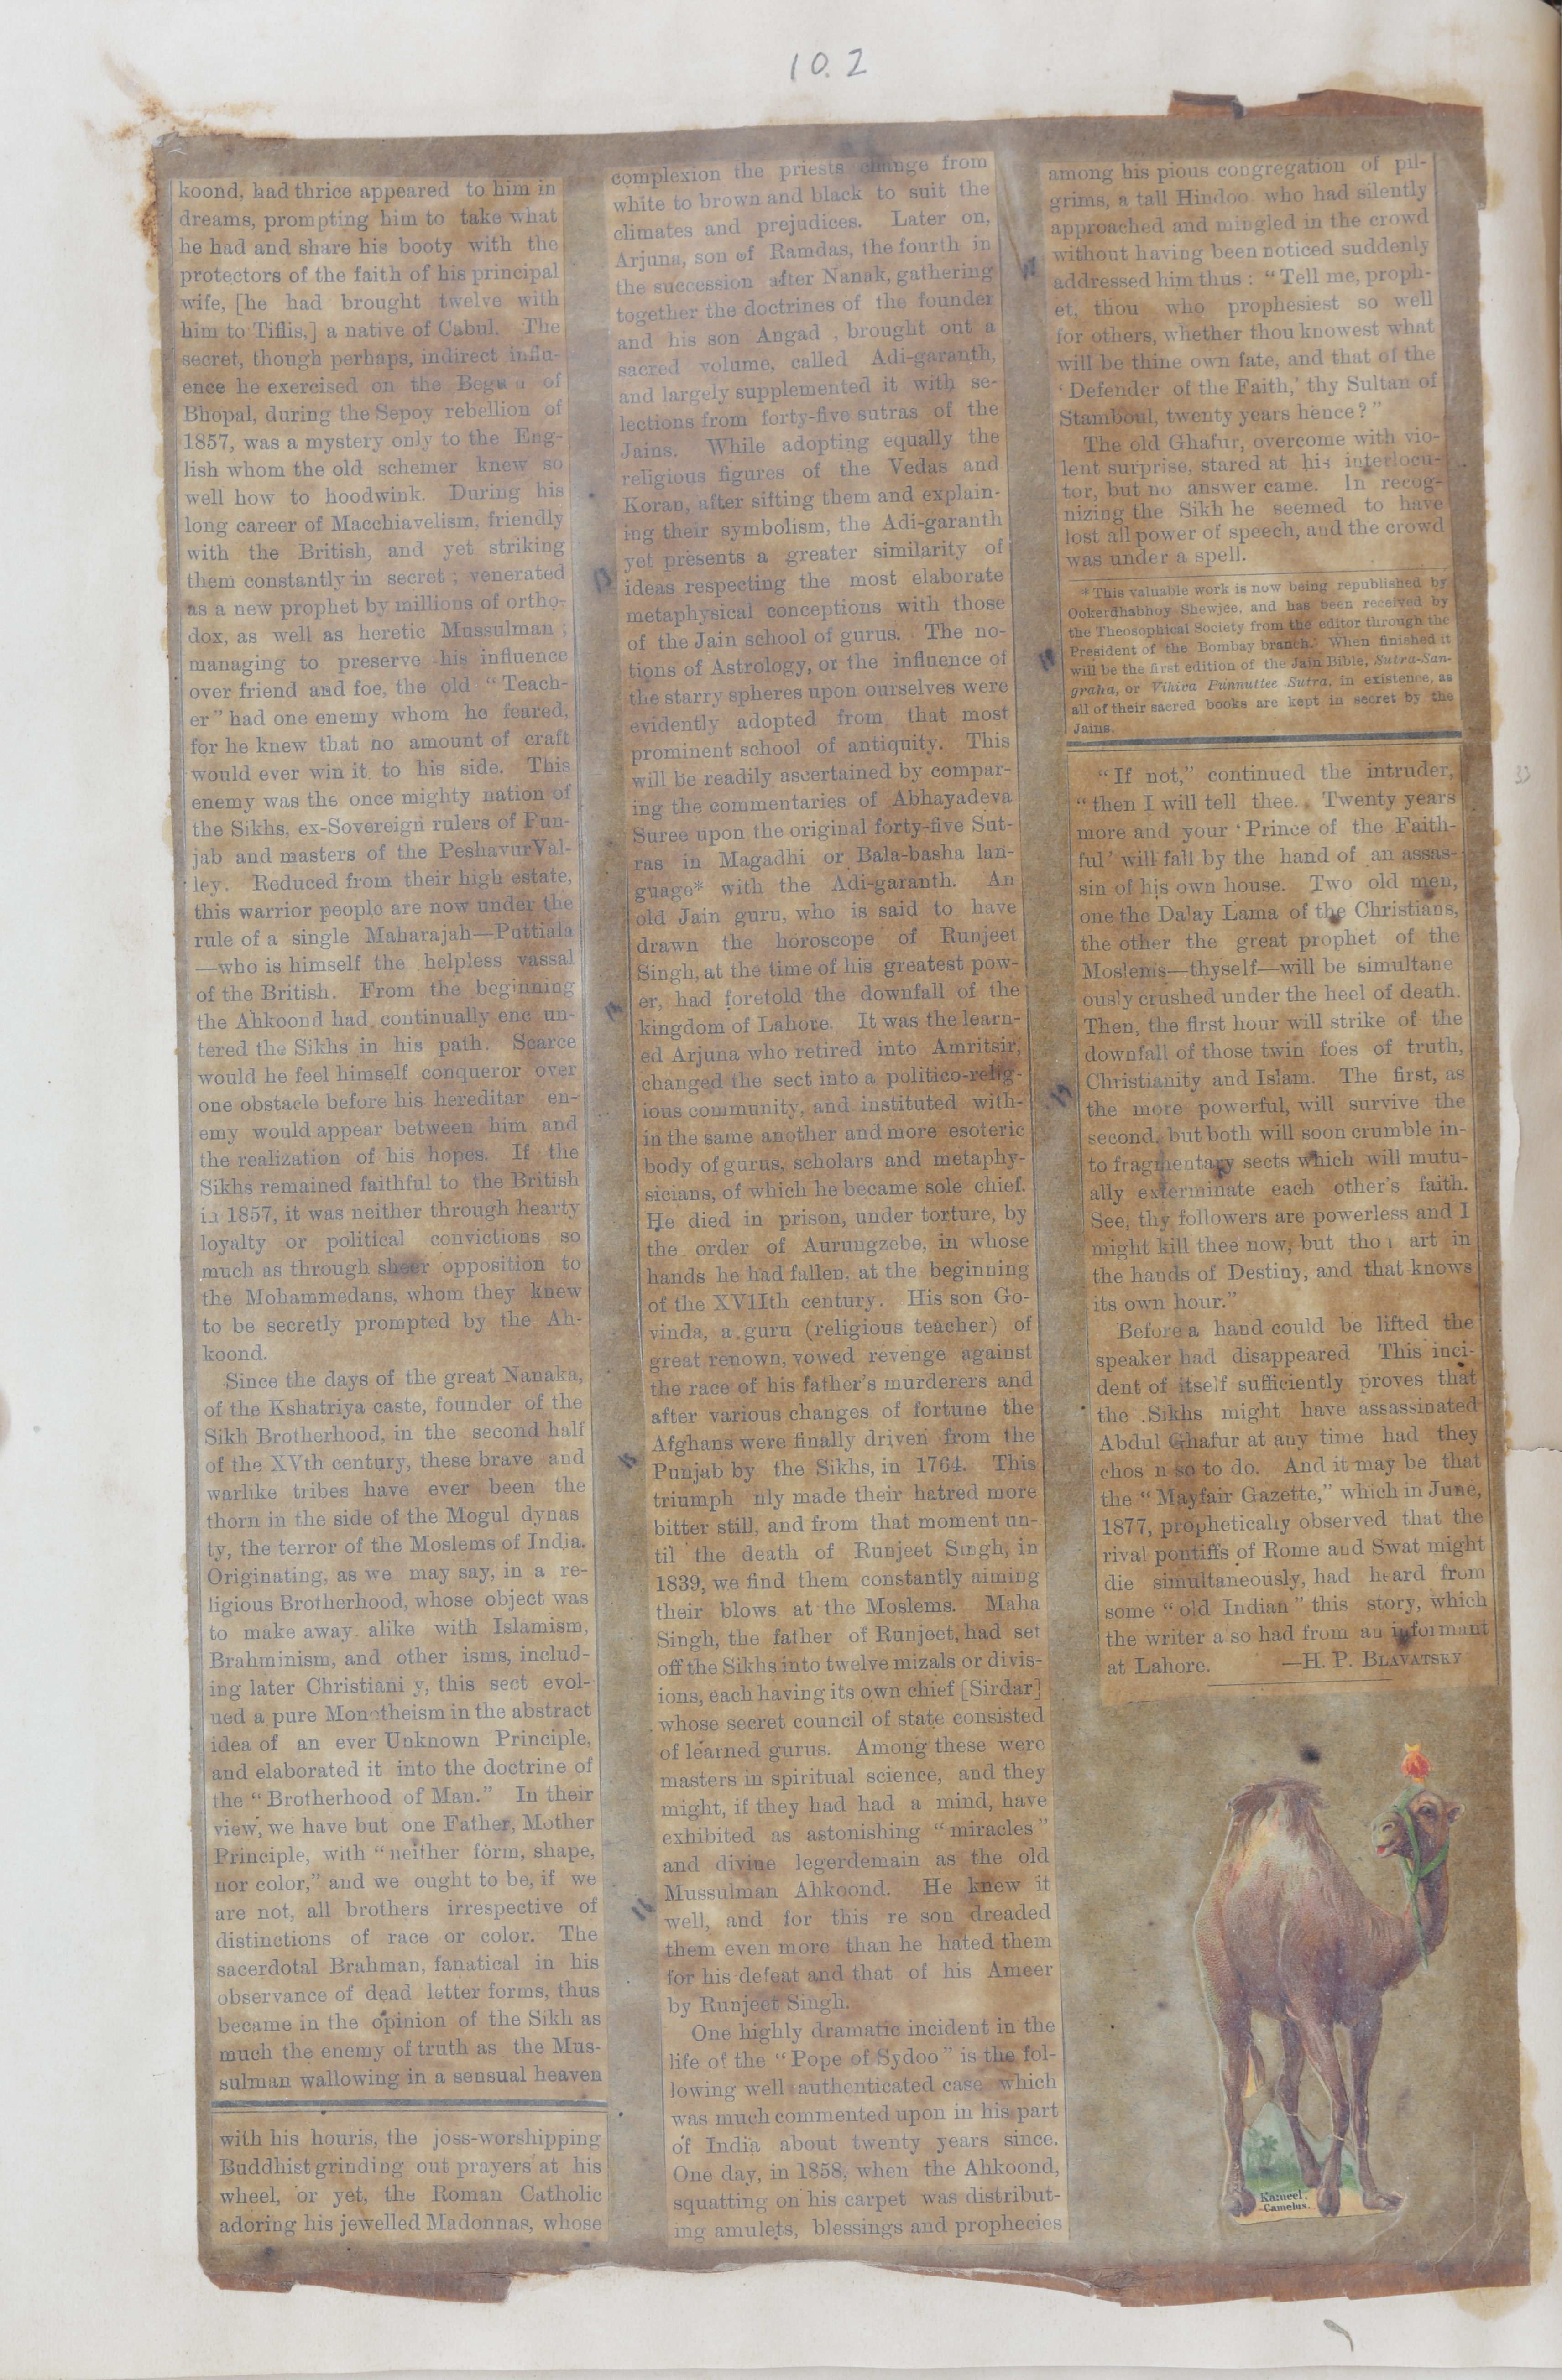 10.2
koond, had thrice appeared to him in
dreams, prompting him to take what
he had and share his booty with the
protectors of the faith of his principal
wife, [he had brought twelve with
him to Tiflis,] a native of Cabul. The
secret, though perhaps, indirect influ-
ence he exercised on the of
Bhopal, during the Sepoy rebellion of
1857, was a mystery only to the Eng-
lish whom the old schemer knew so
well how to hoodwink. During his
long career of Macchiavelism, friendly
with the British, and yet striking
them constantly in secret; venerated
as a new prophet by millions of ortho-
dox, as well as heretic Mussulman;
managing to preserve his influence
over friend and foe, the old "Teach-
er" had one enemy whom he feared,
for he knew that no amount of craft
would ever win it to his side. This
enemy was the once mighty nation of
the Sikhs, ex-Sovereign rulers of Pun-
jab and masters of the Peshavur Val-
ley. Reduced from their high estate,
this warrior people are now under the
rule of a single Maharajah—Puttiala
—who is himself the helpless vassal
of the British. From the beginning
the Ahkoond had continually enc un-
tered the Sikhs in his path. Scarce
would he feel himself conqueror over
one obstacle before his hereditar en-
emy would appear between him and
the realization of his hopes. If the
Sikhs remained faithful to the British
in 1857, it was neither through hearty
loyalty or political convictions so
much as through sheer opposition to
the Mohammedans, whom they knew
to be secretly prompted by the Ah-
koond.
Since the days of the great Nanaka,
of the Kshatriya caste, founder of the
Sikh Brotherhood, in the second half
of the XVth century, these brave and
warlike tribes have ever been the
thorn in the side of the Mogul dynas
ty, the terror of the Moslems of India.
Originating, as we may say, in a re-
ligious Brotherhood, whose object was
to make away alike with Islamism,
Brahminism, and other isms, includ-
ing later Christiani y, this sect evol-
ued a pure Monotheism in the abstract
idea of an ever Unknown Principle,
and elaborated it into the doctrine of
the "Brotherhood of Man." In their
view, we have but one Father, Mother
Principle, with "neither form, shape,
nor color," and we ought to be, if we
are not, all brothers irrespective of
distinctions of race or color. The
sacerdotal Brahman, fanatical in his
observance of dead letter forms, thus
became in the opinion of the Sikh as
much the enemy of truth as the Mus-
sulman wallowing in a sensual heaven
with his houris, the joss-worshipping
Buddhist grinding out prayers at his
wheel, or yet, the Roman Catholic
adoring his jewelled Madonnas, whose
complexion the priests change from
white to brown and black to suit the
climates and prejudices. Later on,
Arjuna, son of Ramdas, the fourth in
the succession after Nanak, gathering
together the doctrines of the founder
and his son Angad , brought out a
sacred volume, called Adi-garanth,
and largely supplemented it with se-
lections from forty-five sutras of the
Jains. While adopting equally the
religious figures of the Vedas and
Koran, after sifting them and explain-
ing their symbolism, the Adi-garanth
yet presents a greater similarity of
ideas respecting the most elaborate
metaphysical conceptions with those
of the Jain school of gurus. The no-
tions of Astrology, or the influence of
the starry spheres upon ourselves were
evidently adopted from that most
prominent school of antiquity. This
will be readily ascertained by compar-
ing the commentaries of Abhayadeva
Suree upon the original forty-five Sut-
ras in Magadhi or Bala-basha lan-
guage* with the Adi-garanth. An
old Jain guru, who is said to have
drawn the horoscope of Runjeet
Singh, at the time of his greatest pow-
er, had foretold the downfall of the
kingdom of Lahore. It was the learn-
ed Arjuna who retired into Amritsir,
changed the sect into a politico-relig-
ious community, and instituted with-
in the same another and more esoteric
body of gurus, scholars and metaphy-
sicians, of which he became sole chief.
He died in prison, under torture, by
the order of Aurungzebe, in whose
hands he had fallen, at the beginning
of the XVIIth century. His son Go-
vinda, a guru (religious teacher) of
great renown, vowed revenge against
the race of his father's murderers and
after various changes of fortune the
Afghans were finally driven from the
Punjab by the Sikhs, in 1764. This
triumph nly made their hatred more
bitter still, and from that moment un-
til the death of Runjeet Singh, in
1839, we find them constantly aiming
their blows at the Moslems. Maha
Singh, the father of Runjeet, had set
off the Sikhs into twelve mizals or divis-
ions, each having its own chief [Sirdar]
whose secret council of state consisted
of learned gurus. Among these were
masters in spiritual science, and they
might, if they had had a mind, have
exhibited as astonishing "miracles"
and divine legerdemain as the old
Mussulman Ahkoond. He knew it
well, and for this re son dreaded
them even more than he hated them
for his defeat and that of his Ameer
by Runjeet Singh.
One highly dramatic incident in the
life of the "Pope of Sydoo" is the fol-
lowing well authenticated case which
was much commented upon in his part
of India about twenty years since.
One day, in 1858, when the Ahkoond,
squatting on his carpet was distribut-
ing amulets, blessings and prophecies
among his pious congregation of pil-
grims, a tall Hindoo who had silently
approached and mingled in the crowd
without having been noticed suddenly
addressed him thus: "Tell me, proph-
et, thou who prophesiest so well
for others, whether thou knowest what
will be thine own fate, and that of the
'Defender of the Faith,' thy Sultan of
Stamboul, twenty years hence?"
The old Ghafur, overcome with vio-
lent surprise, stared at his interlocu-
tor, but no answer came. In recog-
nizing the Sikh he seemed to have
lost all power of speech, and the crowd
was under a spell.
*This valuable work is now being republished by
Ookerdhabhoy Shewjee, and has been received by
the Theosophical Society from the editor through the
President of the Bombay branch. When finished it
will be the first edition of the Jain Bible, Sutra-San-
graha, or Vihiva Punnuttee Sutra, in existence, as
all of their sacred books are kept in secret by the
Jains.
"If not," continued the intruder,
"then I will tell thee. Twenty years
more and your 'Prince of the Faith-
ful' will fall by the hand of an assas-
sin of his own house. Two old men,
one the Dalay Lama of the Christians,
the other the great prophet of the
Moslems—thyself—will be simultane
ously crushed under the heel of death.
Then, the first hour will strike of the
downfall of those twin foes of truth,
Christianity and Islam. The first, as
the more powerful, will survive the
second, but both will soon crumble in-
to fragmentary sects which will mutu-
ally exterminate each other's faith.
See, thy followers are powerless and I
might kill thee now, but thou art in
the hands of Destiny, and that knows
its own hour."
Before a hand could be lifted the
speaker had disappeared This inci-
dent of itself sufficiently proves that
the Sikhs might have assassinated
Abdul Ghafur at any time had they
chos n so to do. And it may be that
the "Mayfair Gazette," which in June,
1877, prophetically observed that the
rival pontiffs of Rome and Swat might
die simultaneously, had heard from
some "old Indian" this story, which
the writer a so had from an informant
at Lahore. —H. P. BLAVATSKY
33
Kameel.
Camelus.